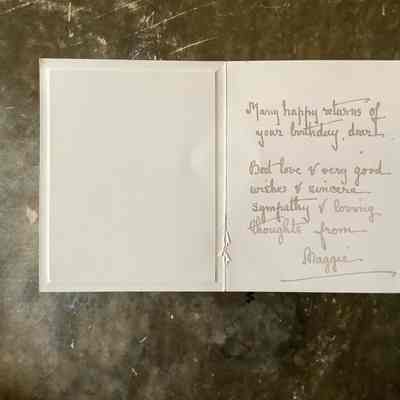 Many happy returns of
your birthday, dear
Best love & very good
wishes & sincere
sympathy & loving
thoughts from
Maggie.